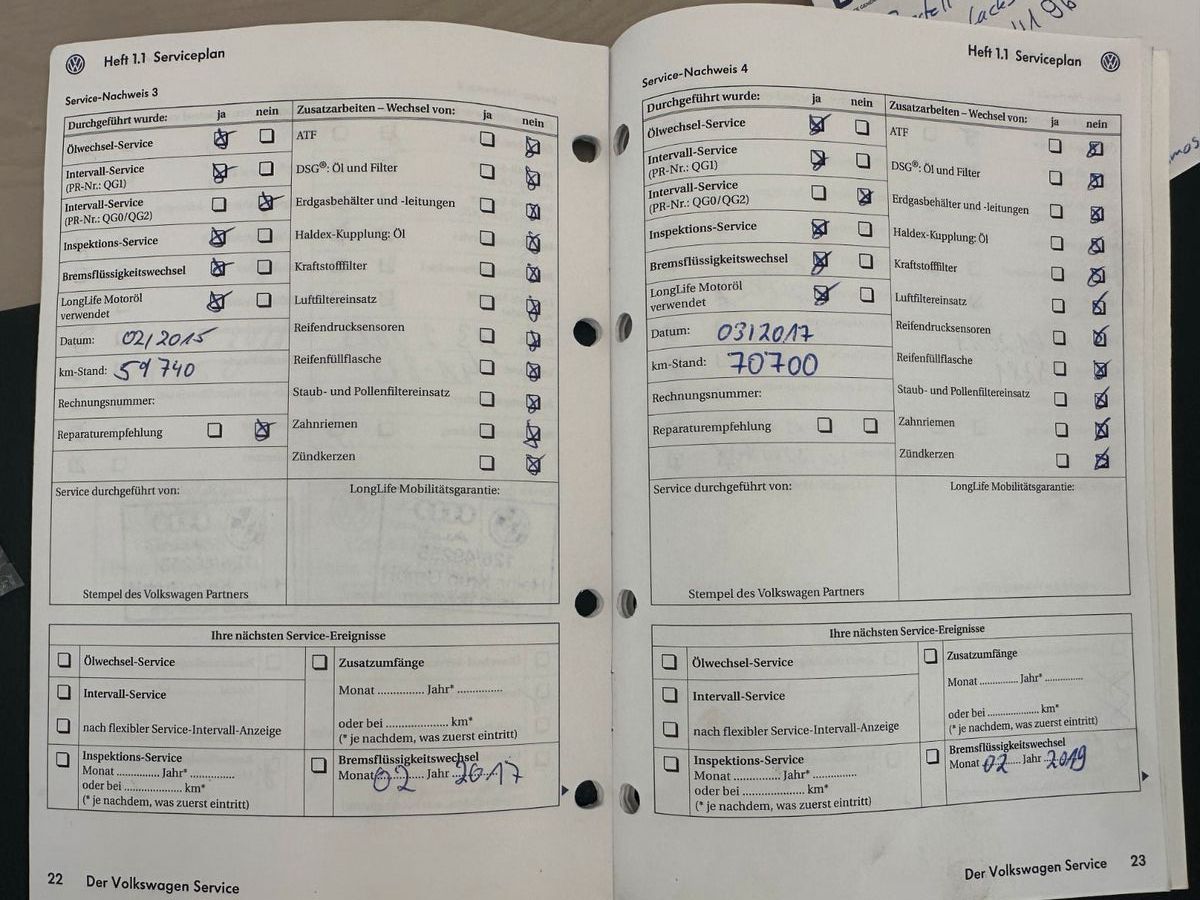 Heft 1.1 Serviceplan
Service-Nachweis 3
Durchgeführt wurde: ja nein
Ölwechsel-Service
Intervall-Service
(PR-Nr.: QG1)
Intervall-Service
(PR-Nr.: QG0/QG2)
Inspektions-Service
Bremsflüssigkeitswechsel
LongLife Motoröl
verwendet
Datum: 02/2015
km-Stand: 59 740
Rechnungsnummer:
Reparaturempfehlung
Zusatzarbeiten – Wechsel von: ja nein
ATF
DSG®: Öl und Filter
Erdgasbehälter und -leitungen
Haldex-Kupplung: Öl
Kraftstofffilter
Luftfiltereinsatz
Reifendrucksensoren
Reifenfüllflasche
Staub- und Pollenfiltereinsatz
Zahnriemen
Zündkerzen
Service durchgeführt von:
LongLife Mobilitätsgarantie:
Stempel des Volkswagen Partners
Ihre nächsten Service-Ereignisse
Ölwechsel-Service
Intervall-Service
nach flexibler Service-Intervall-Anzeige
Inspektions-Service
Monat ............ Jahr* ............
oder bei .................... km*
(* je nachdem, was zuerst eintritt)
Zusatzumfänge
Monat ............. Jahr* .............
oder bei .................... km*
(* je nachdem, was zuerst eintritt)
Bremsflüssigkeitswechsel
Monat 02 Jahr 2017
22 Der Volkswagen Service
Heft 1.1 Serviceplan
Service-Nachweis 4
Durchgeführt wurde: ja nein
Ölwechsel-Service
Intervall-Service
(PR-Nr.: QG1)
Intervall-Service
(PR-Nr.: QG0/QG2)
Inspektions-Service
Bremsflüssigkeitswechsel
LongLife Motoröl
verwendet
Datum: 03/2017
km-Stand: 70'700
Rechnungsnummer:
Reparaturempfehlung
Zusatzarbeiten – Wechsel von: ja nein
ATF
DSG®: Öl und Filter
Erdgasbehälter und -leitungen
Haldex-Kupplung: Öl
Kraftstofffilter
Luftfiltereinsatz
Reifendrucksensoren
Reifenfüllflasche
Staub- und Pollenfiltereinsatz
Zahnriemen
Zündkerzen
Service durchgeführt von:
LongLife Mobilitätsgarantie:
Stempel des Volkswagen Partners
Ihre nächsten Service-Ereignisse
Ölwechsel-Service
Intervall-Service
nach flexibler Service-Intervall-Anzeige
Inspektions-Service
Monat ............ Jahr* ............
oder bei .................... km*
(* je nachdem, was zuerst eintritt)
Zusatzumfänge
Monat ............ Jahr* ............
oder bei .................... km*
(* je nachdem, was zuerst eintritt)
Bremsflüssigkeitswechsel
Monat 02 Jahr 2019
Der Volkswagen Service 23